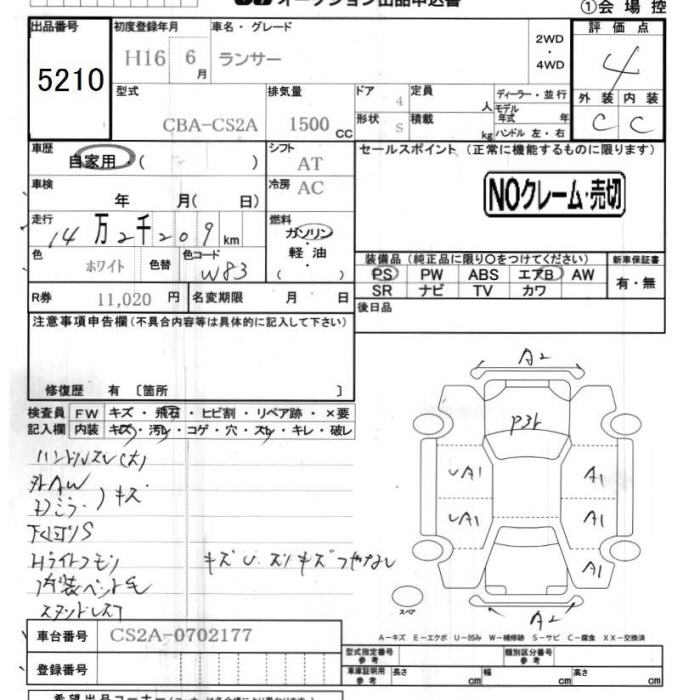 オークション出品申込書
①会場控
出品番号 初度登録年月 車名・グレード 評価点
5210 H16 6月 ランサー 2WD・4WD 4
型式 排気量 ドア 定員 ディーラー・並行 外装 内装
CBA-CS2A 1500CC 4 人 モデル年式 年 C C
形状 S 積載 kg ハンドル 左・右
車歴 自家用 ( ) シフト AT セールスポイント (正常に機能するものに限ります)
車検 年 月( 日) 冷房 AC NOクレーム・売切
走行 14万2千209km 燃料 ガソリン 軽油 ( )
色 ホワイト 色替 色コード W83
装備品 (純正品に限り○をつけてください) 新車保証書
PS PW ABS エアB AW 有・無
SR ナビ TV カワ
R券 11,020円 名変期限 月 日 後日品
注意事項申告欄(不具合内容等は具体的に記入して下さい)
修復歴 有 [箇所 ]
検査員 FW キズ・飛石・ヒビ割・リペア跡・×要
記入欄 内装 キズ・汚レ・コゲ・穴・スレ・キレ・破レ
ハンドルスレ(大)
外AW
キズ
下廻りS
Hライトクモリ
キズ U・スリキズ
A2
P3ｷ
UA1 A1
UA1 A1
A1
A2
スペア
A-キズ E-エクボ U-凹み W-補修跡 S-サビ C-腐食 XX-交換済
車台番号 CS2A-0702177
登録番号
型式指定番号 参考 類別区分番号 参考
車庫証明用 参考 長さ cm 幅 cm 高さ cm
希望出品コーナー